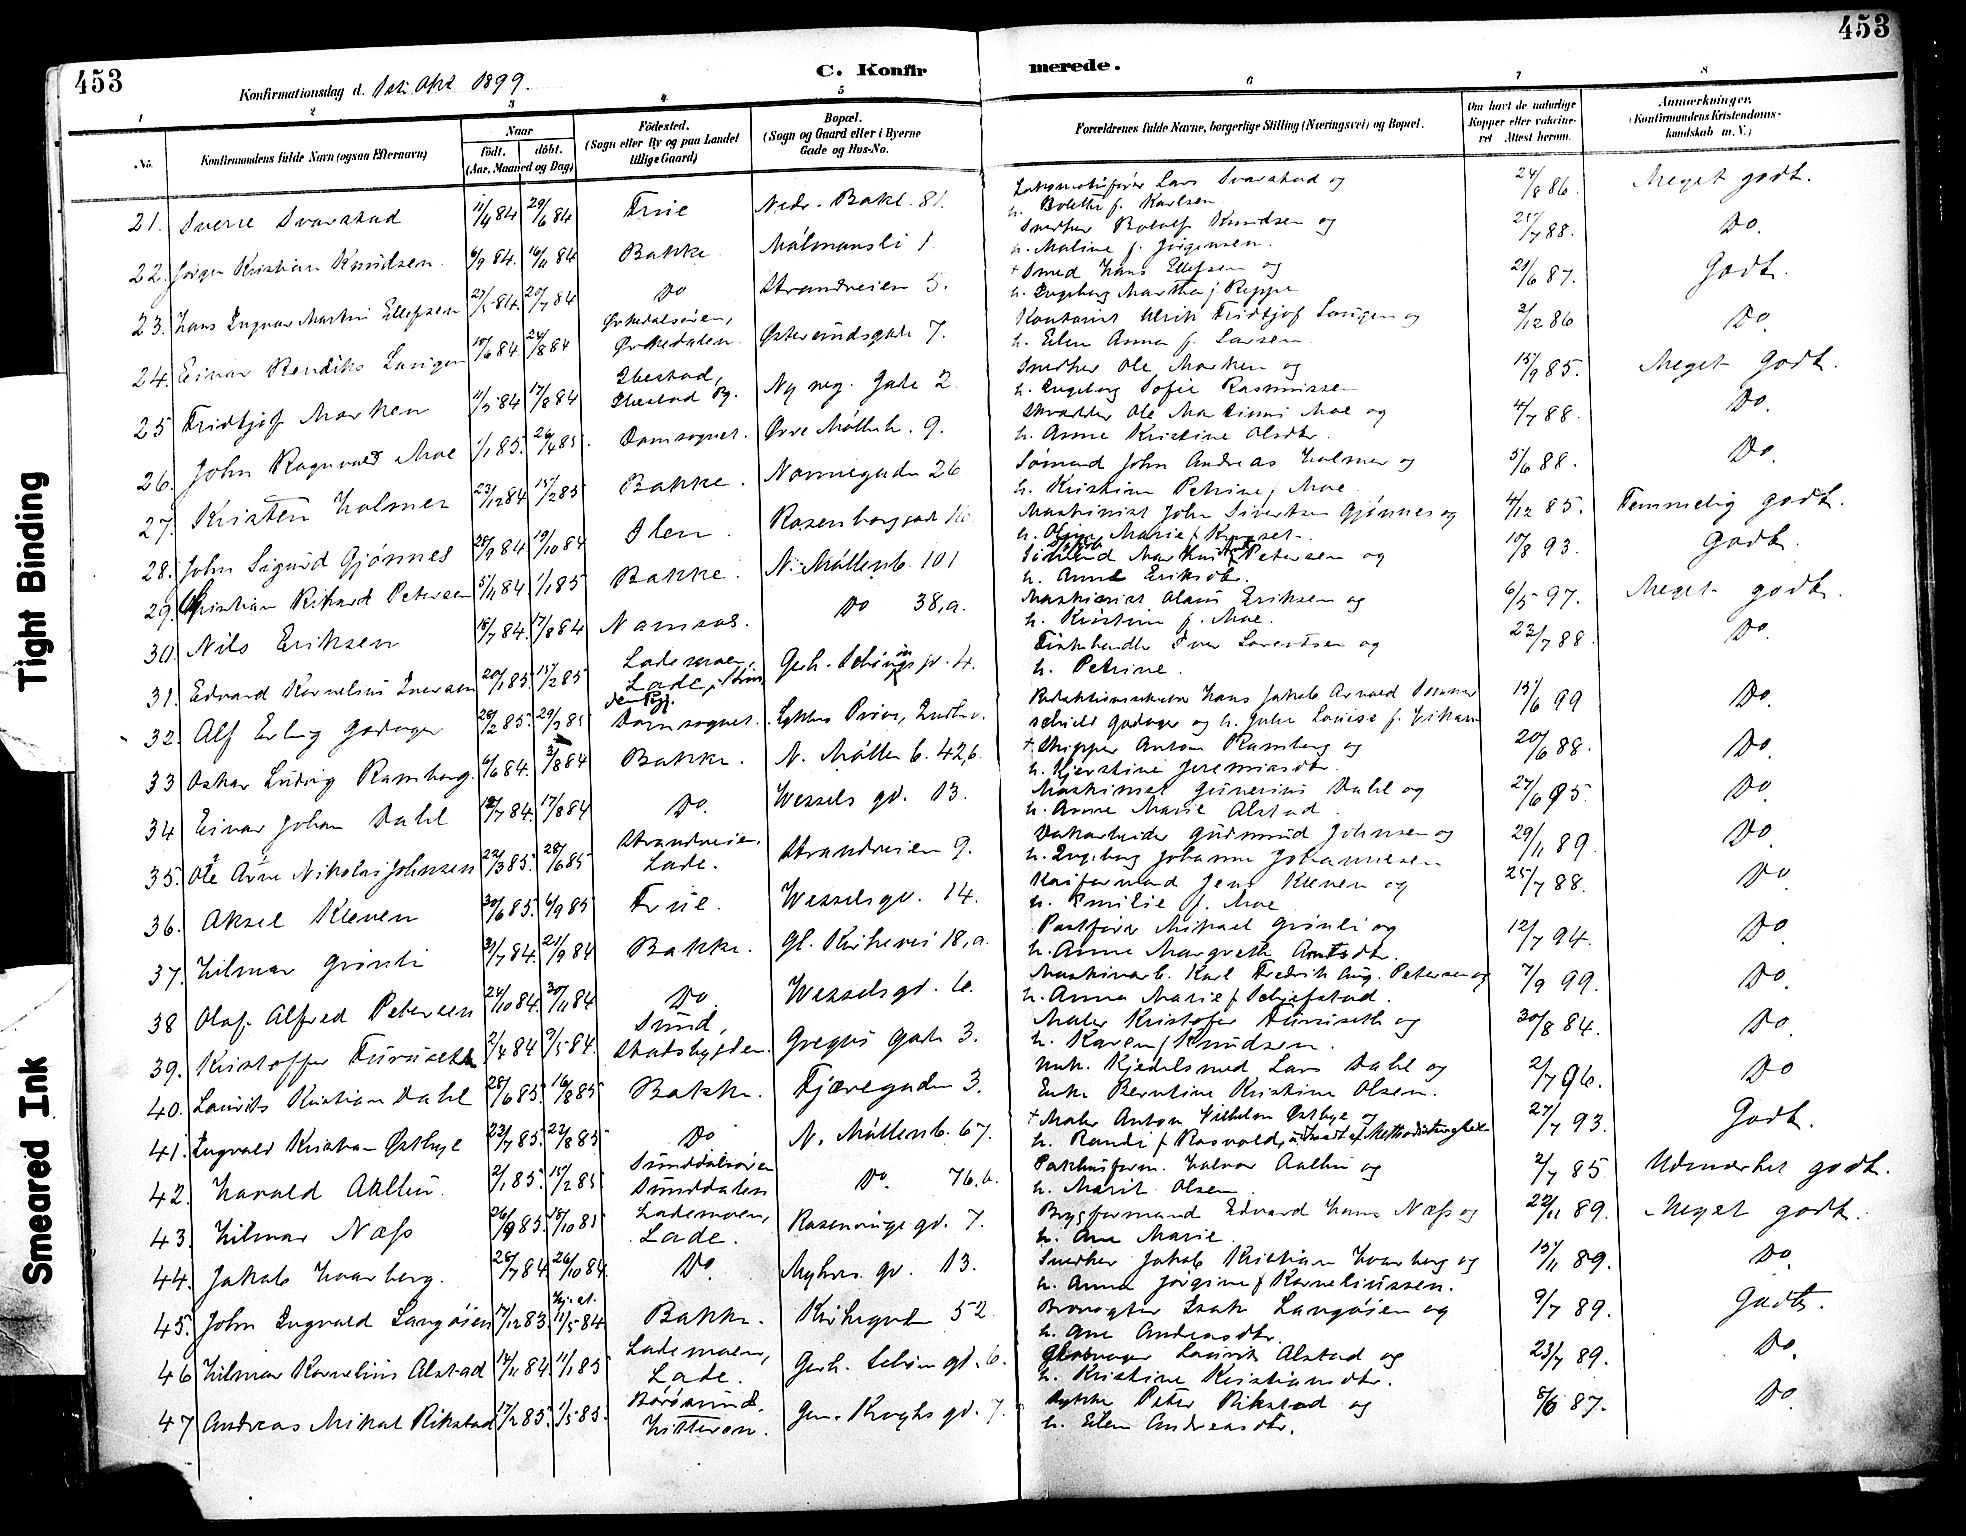 453
453
C. Konfirmerede.
Konfirmationsdag d. 1ste Okt 1899.
1 2 3 4 5 6 7 8
No. Konfirmandens fulde Navn (ogsaa Efternavn) Naar født. døbt. (Aar, Maaned og Dag) Fødested. (Sogn eller By og paa Landet tillige Gaard) Bopæl. (Sogn og Gaard eller i Byerne Gade og Hus-No. Forældrenes fulde Navne, borgerlige Stilling (Næringsvei) og Bopæl. Om havt de naturlige Kopper eller vaccineret Attest herom. Anmærkninger, (Konfirmandens Kristendomskundskab m. V.)
21. Sverre Svarstad 11/4 84 29/6 84 Frue Nedr. Bakl. 81. Lokomotivfører Lars Svarstad og 24/8 86. Meget godt.
h. Bolette f. Karlsen
22. Jørgen Kristian Knudsen 6/9 84. 16/11 84 Bakke Målmansli 1. Snedker Rolalf Knudsen og 25/7 88. Do.
h. Maline f. Jørgensen.
23. Hans Ingvar Martin Ellefsen 27/5 84. 20/7 84 Do Strandveien 5. + Smed Hans Ellefsen og 21/6 87. Godt.
h. Ingeborg Martha f. Reppe
24. Einar Rendiks Langen 10/6 84. 24/8 84 Ørkedalsøren, Ørkedalen. Østersundsgade 7. Kontorist Ulrik Fridtjof Langen og 2/12 86 Do.
h. Elen Anna f. Larsen
25 Fridtjof Marken 11/5 84 17/8 84 Ibestad, Ibestad Pg. Ny neg. Gade 2. Snedker Ole Marken og 15/9 85. Meget godt.
h. Ingeborg Sofie Rasmussen
26. John Ragnvald Moe 1/1 85. 26/4 85. Domsognet. Øvre Møllenb. 9. Skrædder Ole Martinus Moe og 4/7 88. Do.
h. Anne Kristine Olsdtr.
27. Kristen Holmer 23/12 84 15/2 85 Bakke. Nonnegaden 26 Sømand John Andreas Holmer og 5/6 88. Do.
h. Kristine Petrine f. Moe
28. John Sigurd Gjønnes 28/9 84 19/10 84 Ilen. Rosenborg gade Maskinist John Sivertsen Gjønnes og 4/12 85. Temmelig godt.
h. Oline Marie f.
29. Kristian Rikard Petersen 5/11 84 1/1 85 Bakke. N. Møllenb. 101 Petersen og 10/8 93. Godt.
h. Anne Eriksdtr.
30. Nils Eriksen 18/7 84. 17/8 84 Namsos. Do 38,a. Maskinist Olaus Eriksen og 6/5 97. Meget godt.
h. Kristine f. Moe.
31. Edvard Kornelius Iversen 20/1 85. 15/2 85 Lademoen, Lade, Strinden Pgj. Gerh. Schønings gd. 4. Fiskehandler Iver Lorentsen og 23/7 88. Do.
h. Petrine.
32. Alf Erling Godager 28/2 85. 29/3 85 Domsognet. Lykkens Prøve, Hans Jakob Arnoed Sommer 15/6 99 Do.
schield Godager og h. Julie Louise f.
33 Oskar Ludvig Ramberg. 6/6 84. 3/8 84 Bakke. N. Møllenb. 42,b. + Skipper Anton Ramberg og 20/6 88. Do.
h. Kjerstine Jeremiasdtr.
34 Einar Johan Dahl 12/7 84. 17/8 84 Do. Wessels gd. 13. Maskinist Gunerius Dahl og 27/6 95. Do
h. Anne Marie Alstad.
35. Ole Arne Nikolai Johnsen 22/3 85. 28/6 85 Strandveien, Lade. Strandveien 9. Gudmund Johnsen og 29/11 89. Do.
h. Ingeborg Johanne Johannesen
36. Aksel Kleven 30/6 85. 6/9 85 Frue. Wesselsgd. 14. Kaiformand Jens Kleven og 25/7 88. Do
h. Emilie f. Moe
37. Hilmar Grønli 31/7 84. 21/9 84 Bakke. Gl. Kirkevei 18,a. Postfører Mikael Grønli og 12/7 94. Do
h. Anne Margreth Arntsdtr.
38 Olaf Alfred Petersen 24/10 84. 30/11 84 Do. Wessels gd. 6. Maskinarb. Karl Fredrik Aug. Petersen og 7/9 99. Do
h. Anna Marie f. Schjefstad.
39. Kristoffer Furuseth 2/4 84 9/5 84. Sund, Stadsbygden. Gregus Gade 3. Maler Kristofer Furuseth og 30/8 84. Do
h. Karen f. Knudsen.
40. Laurits Kristian Dahl 28/6 85. 16/8 85 Bakke. Fjæregaden 3. Kjedelsmed Lars Dahl og 2/7 96. Do
Enke Berntine Kristine Olsen.
41. Ingvald Kristian Østbye 23/7 85. 22/8 85 Do N. Møllenb. 67. + Maler Anton Vilhelm Østbye og 27/7 93. Godt.
h. Randi f. Rosvold,
42. Harald Aallin. 2/1 85. 15/2 85 Sunddalsøren Sunddalen Do. 76,b. Pakhusform. Halvor Aallin og 2/7 85 Udmærket godt.
h. Marit Olsen
43. Hilmar Næss 26/9 85. 18/10 85 Lademoen, Lade. Rosenvinge gd. 7. Brygformand Edvard Hans Næss og 22/11 89. Meget godt.
h. Ane Marie.
44. Jakob Hvarberg. 28/7 84. 26/10 84. Do. Myhres gd. 13. Snedker Jakob Kristian Hvarberg og 15/11 89. Do.
h. Anna Jørgine f. Korneliussen.
45. John Ingvald Langøien 17/12 83 11/5 84 Bakke. Kirkegaden 52. Brovogter Isak Langøien og 9/7 89. Godt.
h. Ane Andreasdtr.
46 Hilmar Kornelius Alstad 14/11 84. 11/1 85 Lademoen, Lade. Gerh. Schøn. gd. 6. Laurits Alstad og 23/7 89. Do.
h. Kristine Kristiansdtr.
47 Andreas Mikal Rikstad 17/2 85. 1/5 85. Børøsund, Hitteren. Gen. Kroghs gd. 7. Peter Rikstad og 8/6 87. Do
h. Elen Andreasdtr.
Tight Binding
Smeared Ink